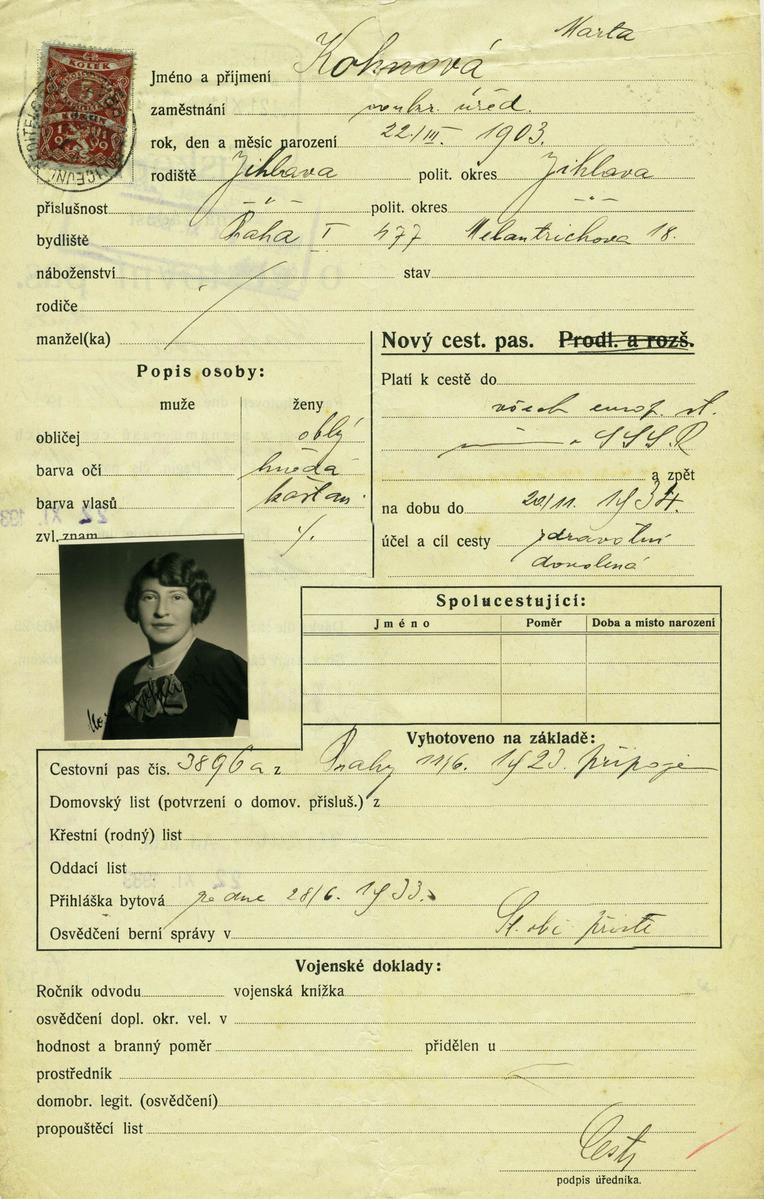 Marta
Jméno a příjmení Kohnová
zaměstnání soukr. úřed.
rok, den a měsíc narození 22./III. 1903.
rodiště Jihlava polit. okres Jihlava
příslušnost -"- polit. okres -"-
bydliště Praha I 477 Melantrichova 18.
náboženství stav
rodiče
manžel(ka)
KOLEK
Nový cest. pas. Prodl. a rozš.
Popis osoby:
muže ženy
obličej oblý
barva očí hnědá
barva vlasů kaštan.
zvl. znam. ./.
Platí k cestě do
všech europ. st.
SSSR
a zpět
na dobu do 20/11. 1934.
účel a cíl cesty zdravotní
dovolená
Spolucestující:
Jméno Poměr Doba a místo narození
Vyhotoveno na základě:
Cestovní pas čís. 3896 a z Prahy 11/6. 1923. připoje
Domovský list (potvrzení o domov. přísluš.) z
Křestní (rodný) list
Oddací list
Přihláška bytová ze dne 28/6. 1933.
Osvědčení berní správy v
Vojenské doklady:
Ročník odvodu vojenská knížka
osvědčení dopl. okr. vel. v
hodnost a branný poměr přidělen u
prostředník
domobr. legit. (osvědčení)
propouštěcí list
podpis úředníka.